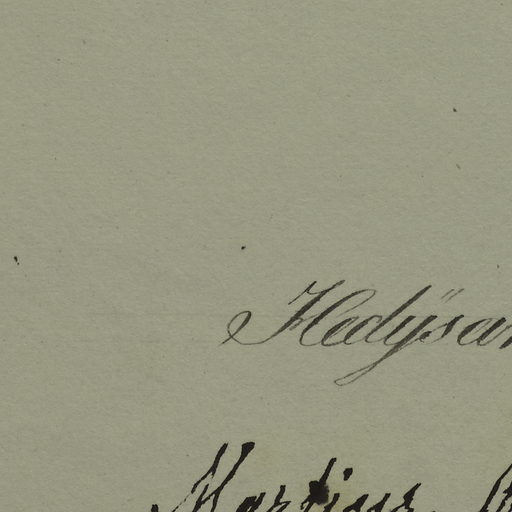 Hedÿsar
Martius